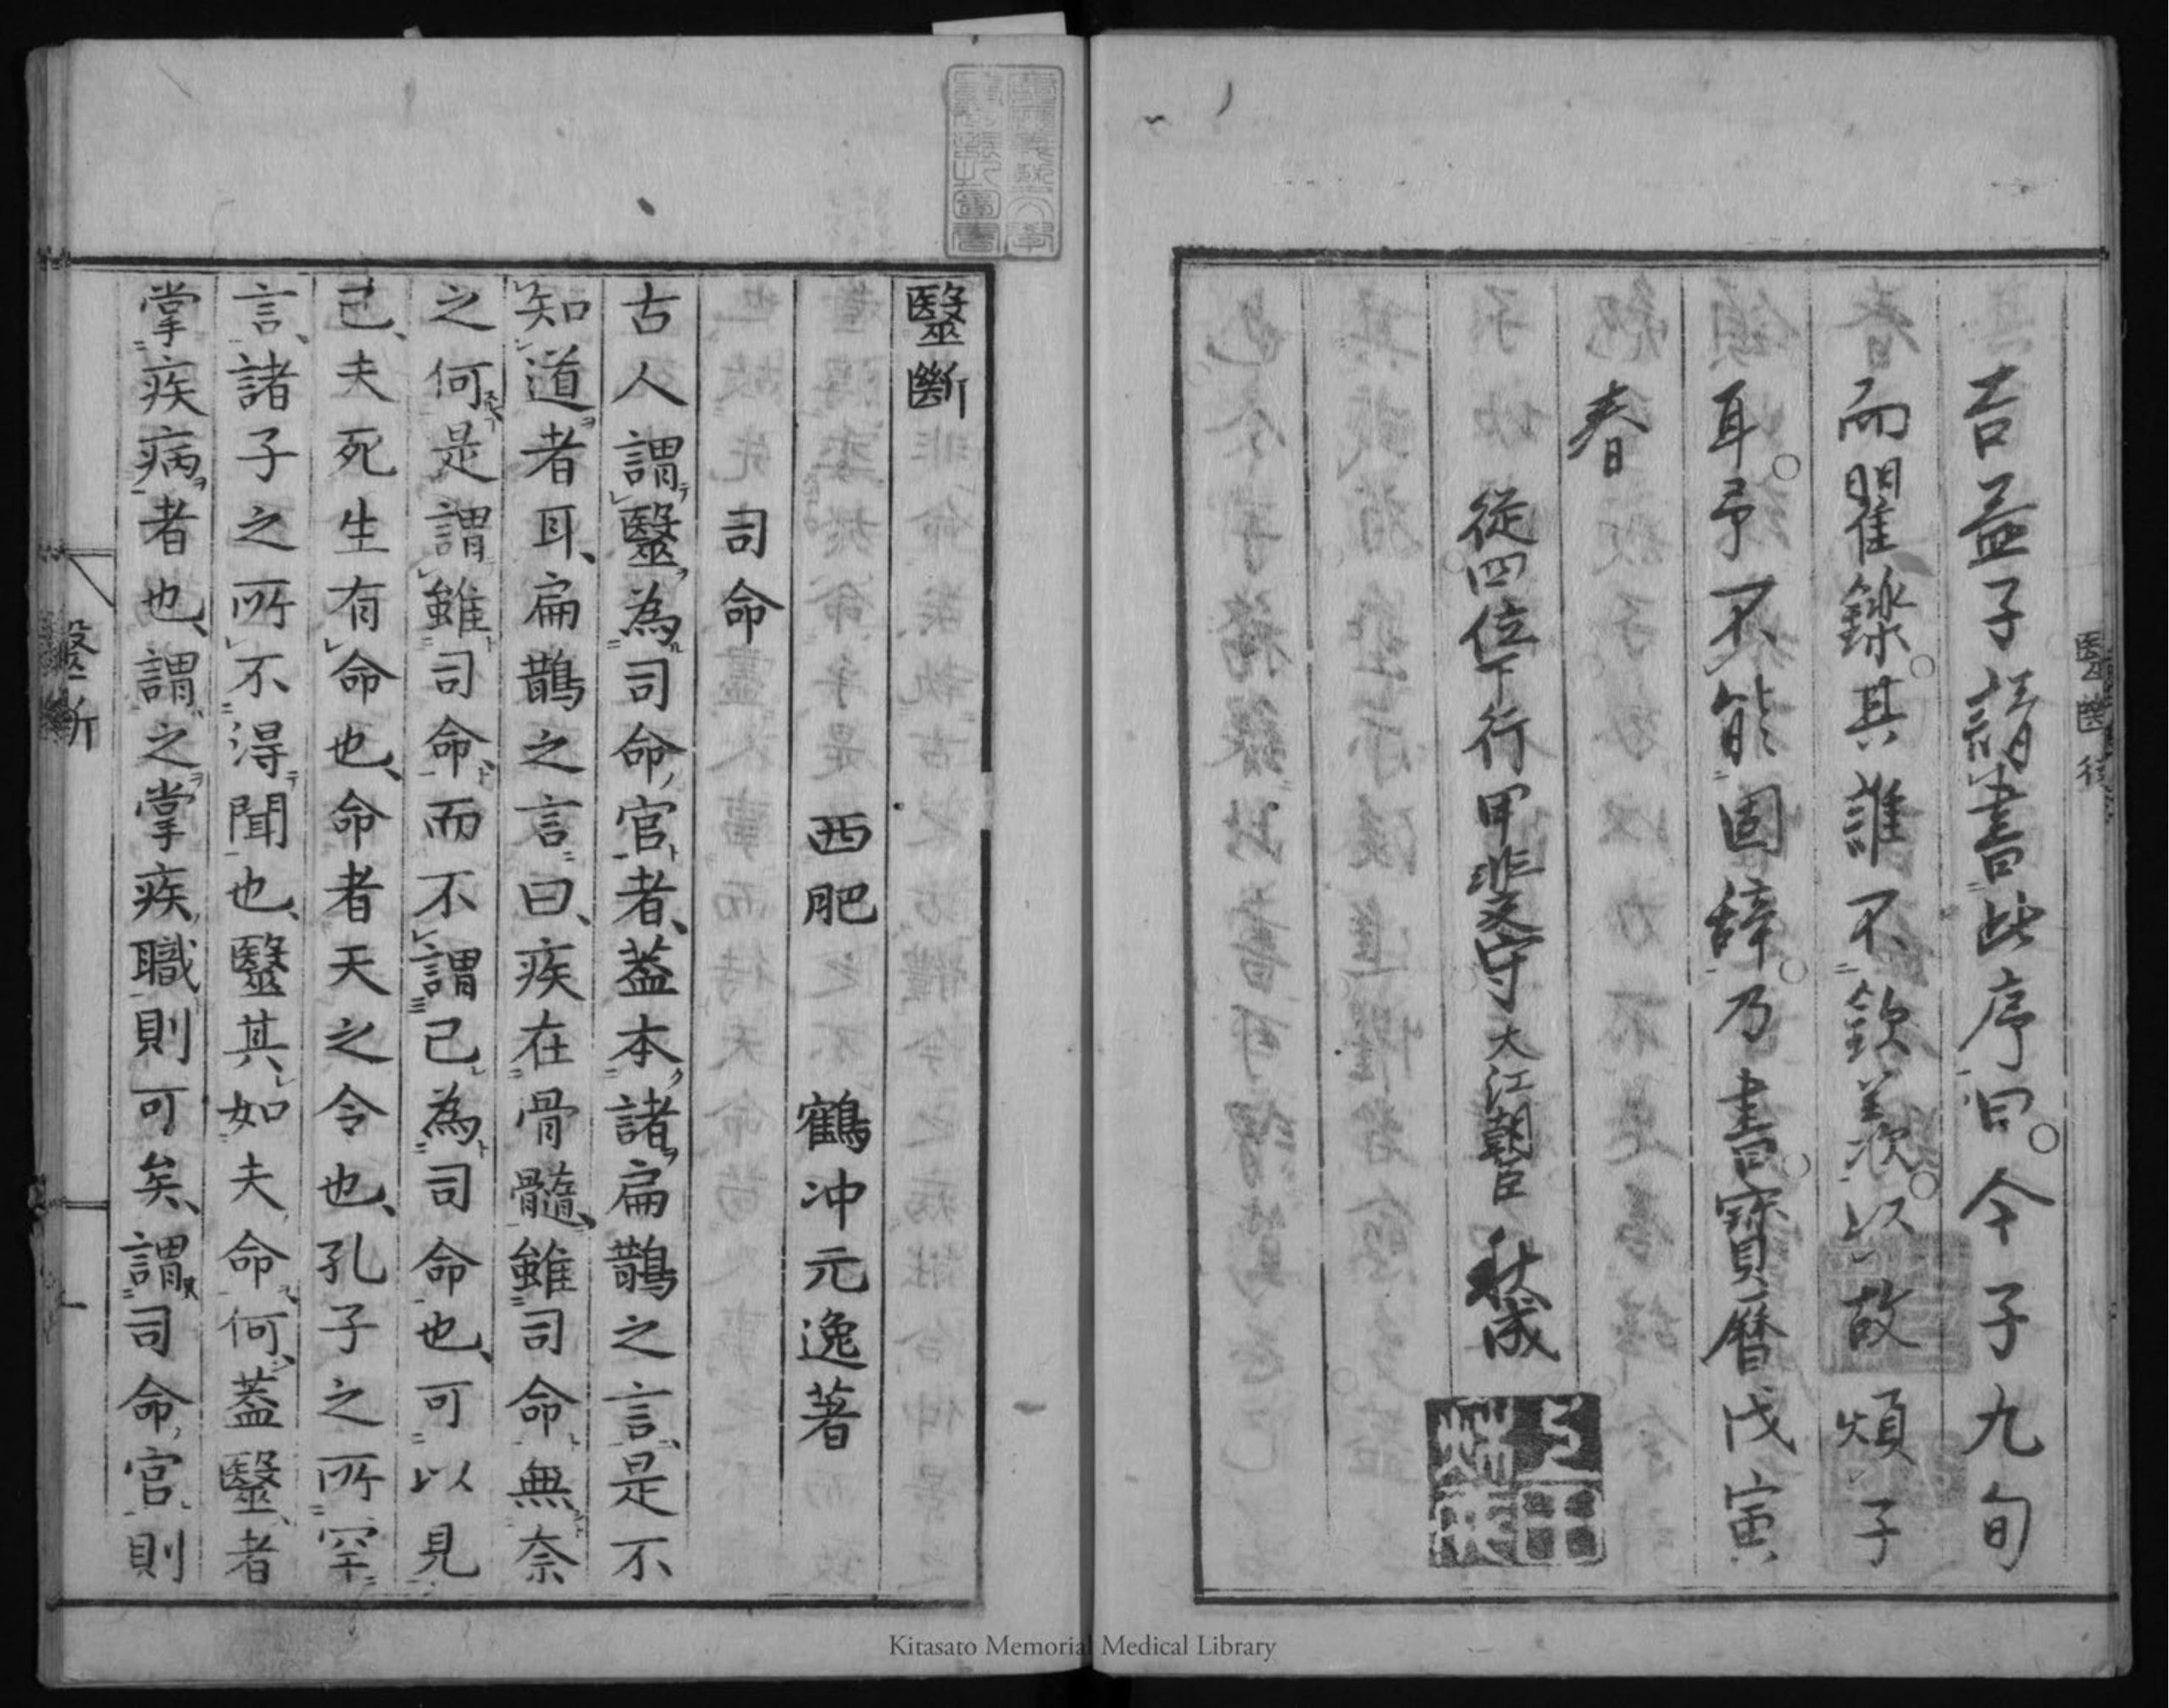 吉益子請書此序曰。今子九旬
而矍鑠。其誰不欽羨。以故煩子
耳。予不能固辞。乃書。寶曆戊寅
春
從四位下行甲斐守大江朝臣秋成
醫斷
西肥 鶴冲元逸著
司命
古人謂醫為司命官者、蓋本諸扁鵲之言、是不
知道者耳、扁鵲之言曰、疾在骨髓、雖司命無奈
之何、是謂雖司命、而不謂己為司命也、可以見
已、夫死生有命也、命者天之令也、孔子之所罕
言、諸子之所不得聞也、醫其如夫命何、蓋醫者
掌疾病者也、謂之掌疾職則可矣、謂司命官則
醫斷
一
Kitasato Memorial Medical Library